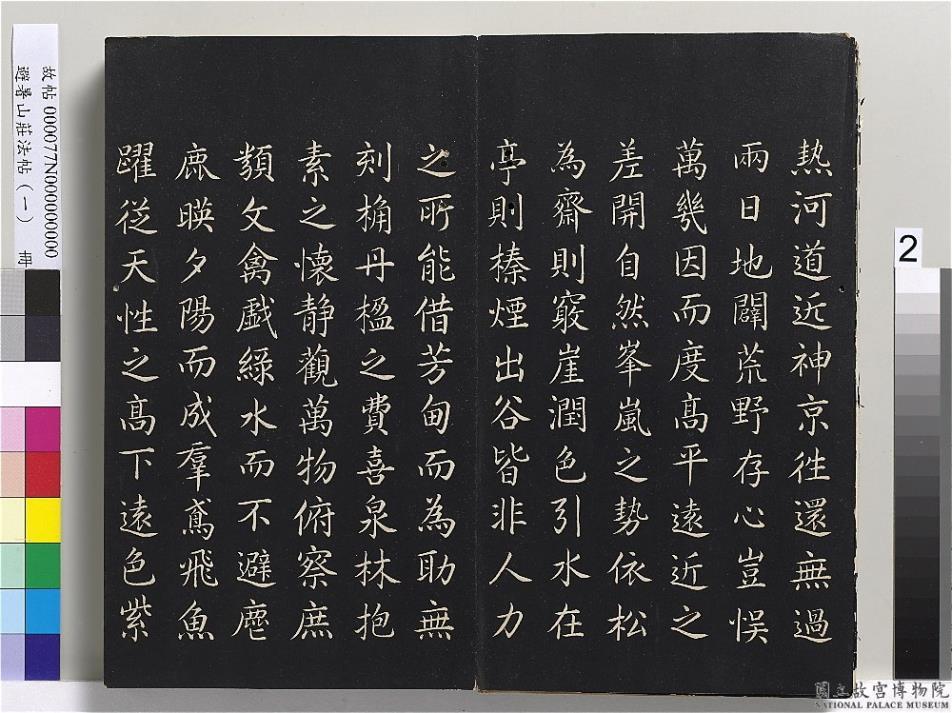 熱河道近神京徃還無過
兩日地闢荒野存心豈悞
萬幾因而度髙平遠近之
差開自然峯嵐之勢依松
為齋則竅崖潤色引水在
亭則榛煙出谷皆非人力
之所能借芳甸而為助無
刻桷丹楹之費喜泉林抱
素之懷静觀萬物俯察庶
類文禽戱綠水而不避麀
鹿暎夕陽而成羣鳶飛魚
躍從天性之髙下遠色紫
故帖 000077N000000000
避暑山莊法帖（一） 冊
2
國立故宮博物院
NATIONAL PALACE MUSEUM